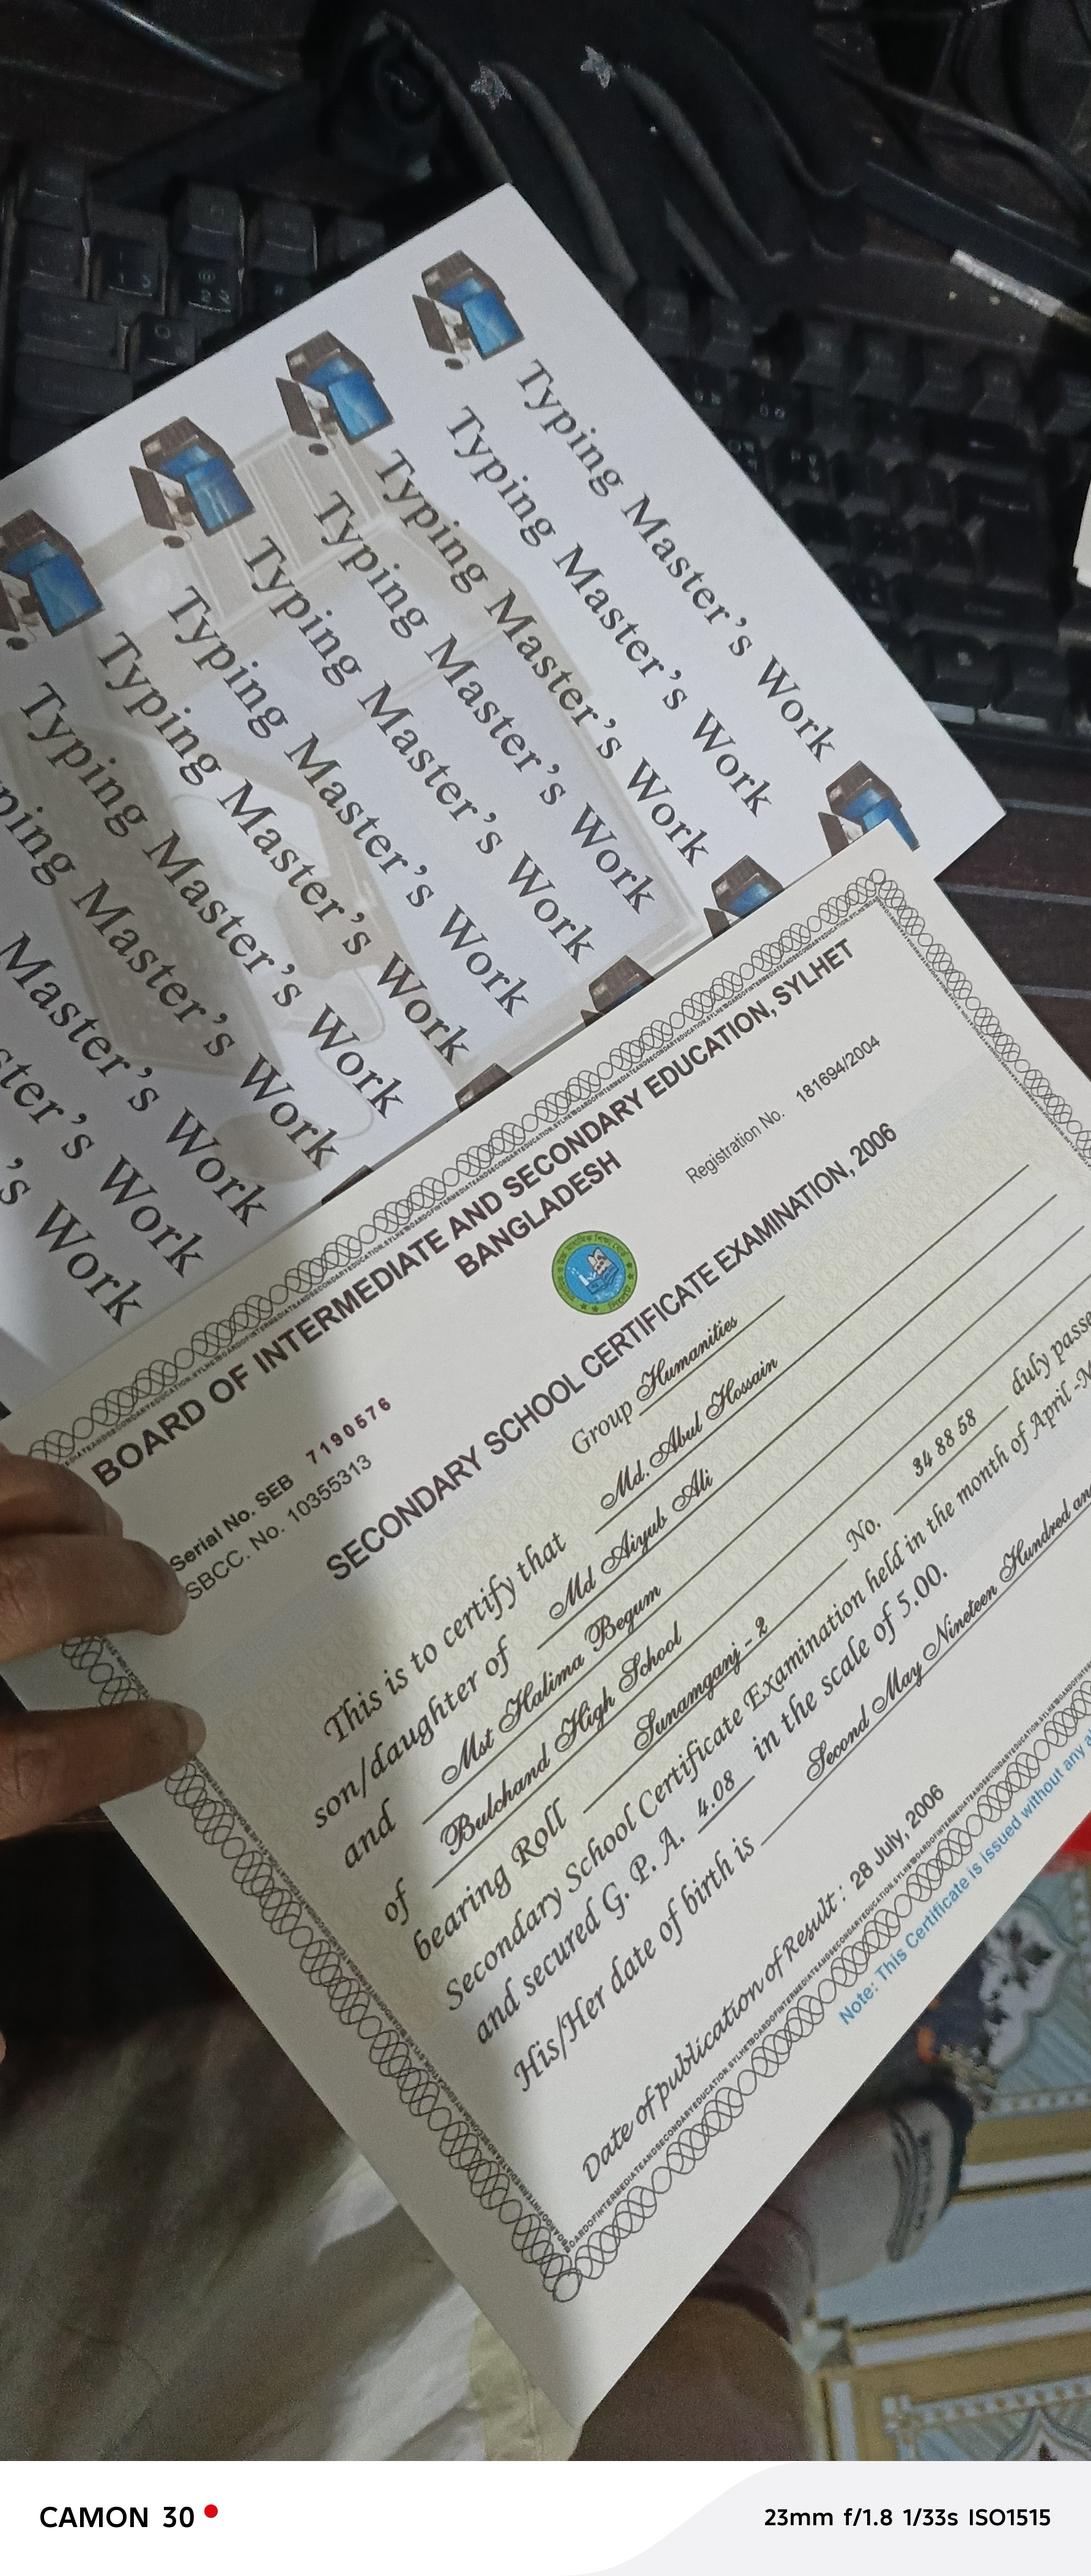 Typing Master's Work
Typing Master's Work
Typing Master's Work
Typing Master's Work
Typing Master's Work
Typing Master's Work
Typing Master's Work
Typing Master's Work
Master's Work
Work
BOARD OF INTERMEDIATE AND SECONDARY EDUCATION, SYLHET
BANGLADESH
Serial No. SEB 7190576
SBCC. No. 10355313
Registration No. 181694/2004
SECONDARY SCHOOL CERTIFICATE EXAMINATION, 2006
Group Humanities
This is to certify that Md. Abul Hossain
son/daughter of Md Aiyub Ali
and Mst Halima Begum
of Bulchand High School
bearing Roll Sunamganj - 2 No. 34 88 58 duly
Secondary School Certificate Examination held in the month of April -
and secured G. P. A. 4.08 in the scale of 5.00.
His/Her date of birth is Second May Nineteen Hundred
Date of publication of Result : 28 July, 2006
Note: This Certificate is issued without any
CAMON 30
23mm f/1.8 1/33s ISO1515